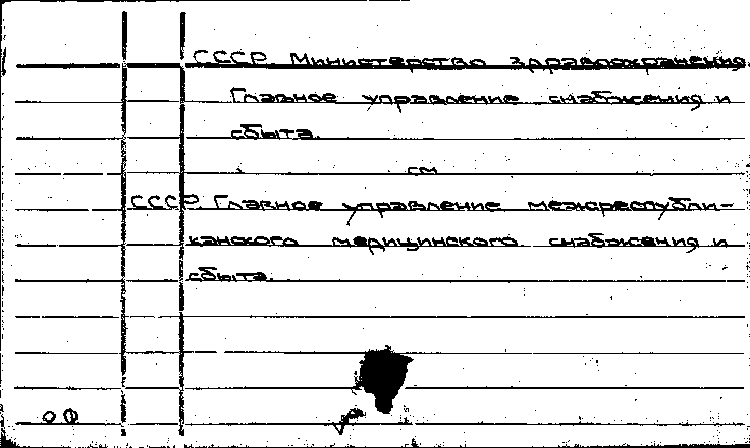 СССР. Министерство здравоохранения.
Главное управление снабжения и
сбыта.
см
СССР. Главное управление межреспубли-
канского медицинского снабжения и
сбыта.